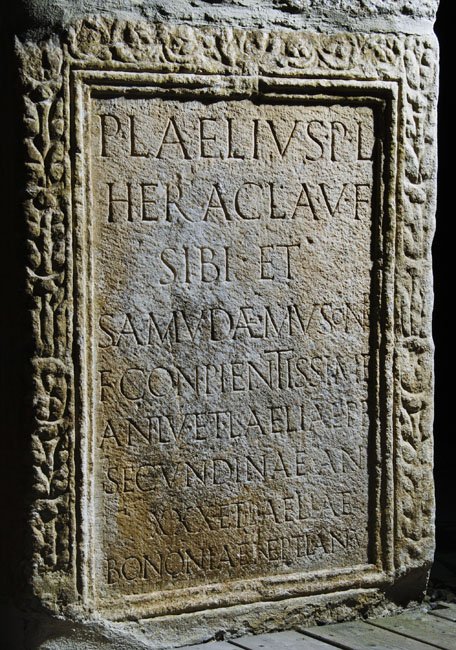 P·AELIVS·P·L
HERACLA·V·F
SIBI·ET
SAMVDAEMVS·N
F·CON·PIENTISSIM
AN·LV·ET·AELIAE
SECVNDINAE·AN
XXX·ET·AELIAE
BONONIAE